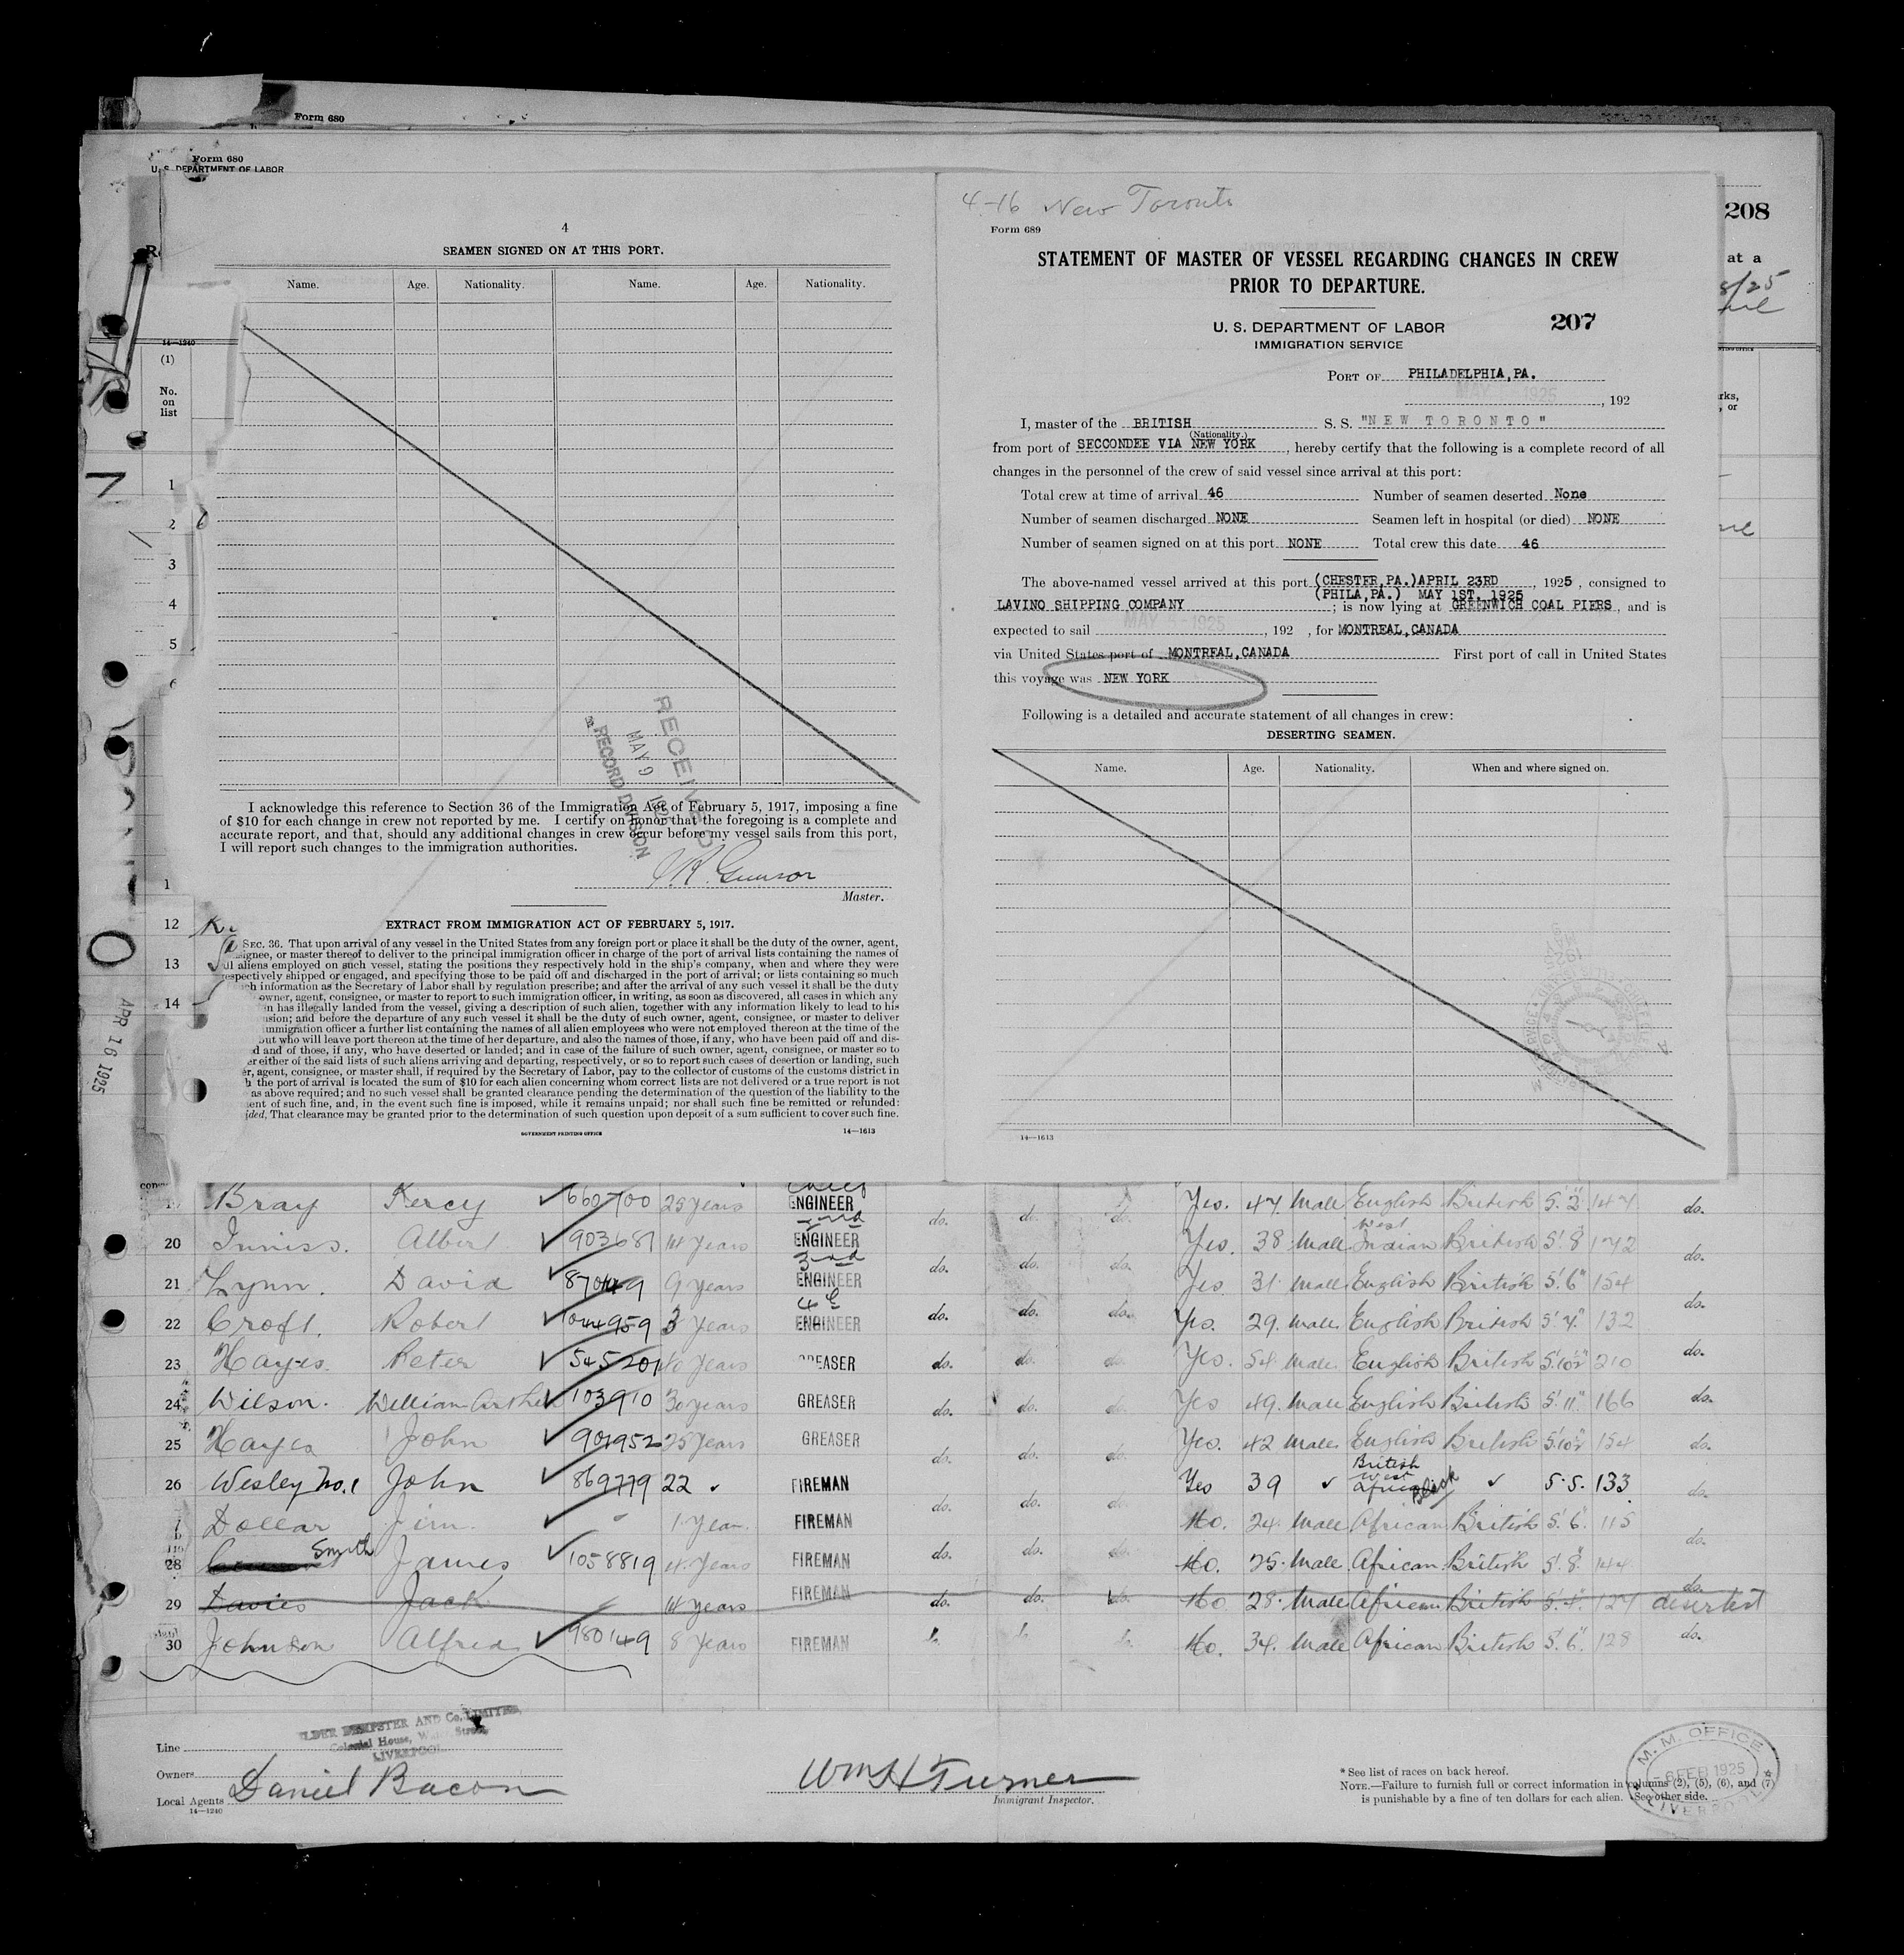 Form 680
Form 680
U. S. DEPARTMENT OF LABOR
4
SEAMEN SIGNED ON AT THIS PORT.
Name. Age. Nationality. Name. Age. Nationality.
14—1240
(1)
No.
on
list
1
2
3
4
5
12
13
14
APR 16 1925
RECEIVED
MAY 9
RECORD DIVISION
I acknowledge this reference to Section 36 of the Immigration Act of February 5, 1917, imposing a fine
of $10 for each change in crew not reported by me. I certify on honor that the foregoing is a complete and
accurate report, and that, should any additional changes in crew occur before my vessel sails from this port,
I will report such changes to the immigration authorities.
Master.
EXTRACT FROM IMMIGRATION ACT OF FEBRUARY 5, 1917.
SEC. 36. That upon arrival of any vessel in the United States from any foreign port or place it shall be the duty of the owner, agent,
signee, or master thereof to deliver to the principal immigration officer in charge of the port of arrival lists containing the names of
all aliens employed on such vessel, stating the positions they respectively hold in the ship's company, when and where they were
respectively shipped or engaged, and specifying those to be paid off and discharged in the port of arrival; or lists containing so much
information as the Secretary of Labor shall by regulation prescribe; and after the arrival of any such vessel it shall be the duty
owner, agent, consignee, or master to report to such immigration officer, in writing, as soon as discovered, all cases in which any
has illegally landed from the vessel, giving a description of such alien, together with any information likely to lead to his
sion; and before the departure of any such vessel it shall be the duty of such owner, agent, consignee, or master to deliver
immigration officer a further list containing the names of all alien employees who were not employed thereon at the time of the
but who will leave port thereon at the time of her departure, and also the names of those, if any, who have been paid off and dis-
d and of those, if any, who have deserted or landed; and in case of the failure of such owner, agent, consignee, or master so to
er either of the said lists of such aliens arriving and departing, respectively, or so to report such cases of desertion or landing, such
er, agent, consignee, or master shall, if required by the Secretary of Labor, pay to the collector of customs of the customs district in
h the port of arrival is located the sum of $10 for each alien concerning whom correct lists are not delivered or a true report is not
as above required; and no such vessel shall be granted clearance pending the determination of the question of the liability to the
ent of such fine, and, in the event such fine is imposed, while it remains unpaid; nor shall such fine be remitted or refunded:
ided, That clearance may be granted prior to the determination of such question upon deposit of a sum sufficient to cover such fine.
GOVERNMENT PRINTING OFFICE 14—1613
4-16 New Toronto
Form 689
STATEMENT OF MASTER OF VESSEL REGARDING CHANGES IN CREW
PRIOR TO DEPARTURE.
U. S. DEPARTMENT OF LABOR 207
IMMIGRATION SERVICE
PORT OF PHILADELPHIA, PA.
, 192
I, master of the BRITISH S. S. "NEW TORONTO"
(Nationality.)
from port of SECCONDEE VIA NEW YORK, hereby certify that the following is a complete record of all
changes in the personnel of the crew of said vessel since arrival at this port:
Total crew at time of arrival 46 Number of seamen deserted None
Number of seamen discharged NONE Seamen left in hospital (or died) NONE
Number of seamen signed on at this port NONE Total crew this date 46
The above-named vessel arrived at this port (CHESTER, PA.) APRIL 23RD, 1925, consigned to
(PHILA, PA.) MAY 1ST. 1925
LAVINO SHIPPING COMPANY ; is now lying at GREENWICH COAL PIERS, and is
expected to sail MAY 5 - 1925, 192 , for MONTREAL, CANADA
via United States port of MONTREAL, CANADA First port of call in United States
this voyage was NEW YORK
Following is a detailed and accurate statement of all changes in crew:
DESERTING SEAMEN.
Name. Age. Nationality. When and where signed on.
14—1613
208
at a
Bray Percy 660700 25 Years Chief ENGINEER do. do. do. Yes. 47 Male English British 5'.2" 147 do.
20 Inniss. Albert 903681 14 Years 2nd ENGINEER do. do. do. Yes. 38 Male West Indian British 5'8" 172 do.
21 Lynn. David 9 Years 3rd ENGINEER do. do. do. Yes 31 Male English British 5'.6" 154 do.
22 Croft. Robert 1044959 3 Years 4th ENGINEER do. do. do. Yes. 29. Male English British 5'.4" 132 do.
23 Hayes. Peter 545201 40 Years GREASER do. do. do. Yes. 54. Male. English British 5'.10½" 210 do.
24 Wilson. William Arthur 103910 30 Years GREASER do. do. do. Yes 49. Male English British 5'.11" 166 do.
25 Hayes John 901952 25 Years GREASER do. do. do. Yes. 42 Male English British 5'.10½" 154 do.
26 Wesley No. 1 John 869779 22 FIREMAN do. do. do. Yes 39 British West Africa Black 5.5. 133 do.
Dollar Jim. 1 Year FIREMAN do. do. do. No. 24. Male African British 5'.6" 115 do.
28 Smith James 1058819 4 Years FIREMAN do. do. do. No. 25. Male African British 5'.8" 144 do.
29 Davies Jack 14 Years FIREMAN do. do. do. No 28. Male African British 5'.4" 127 deserted
30 Johnson Alfred 980149 8 Years FIREMAN No. 34. Male African British 5'.6" 128 do.
Line ELDER DEMPSTER AND Co. LIMITED,
Colonial House, Water Street,
LIVERPOOL
Owners
Local Agents Daniel Bacon
14—1240
Wm H Turner
Immigrant Inspector.
* See list of races on back hereof.
NOTE.—Failure to furnish full or correct information in columns (2), (5), (6), and (7)
is punishable by a fine of ten dollars for each alien. See other side.
M. M. OFFICE
-6 FEB 1925
LIVERPOOL